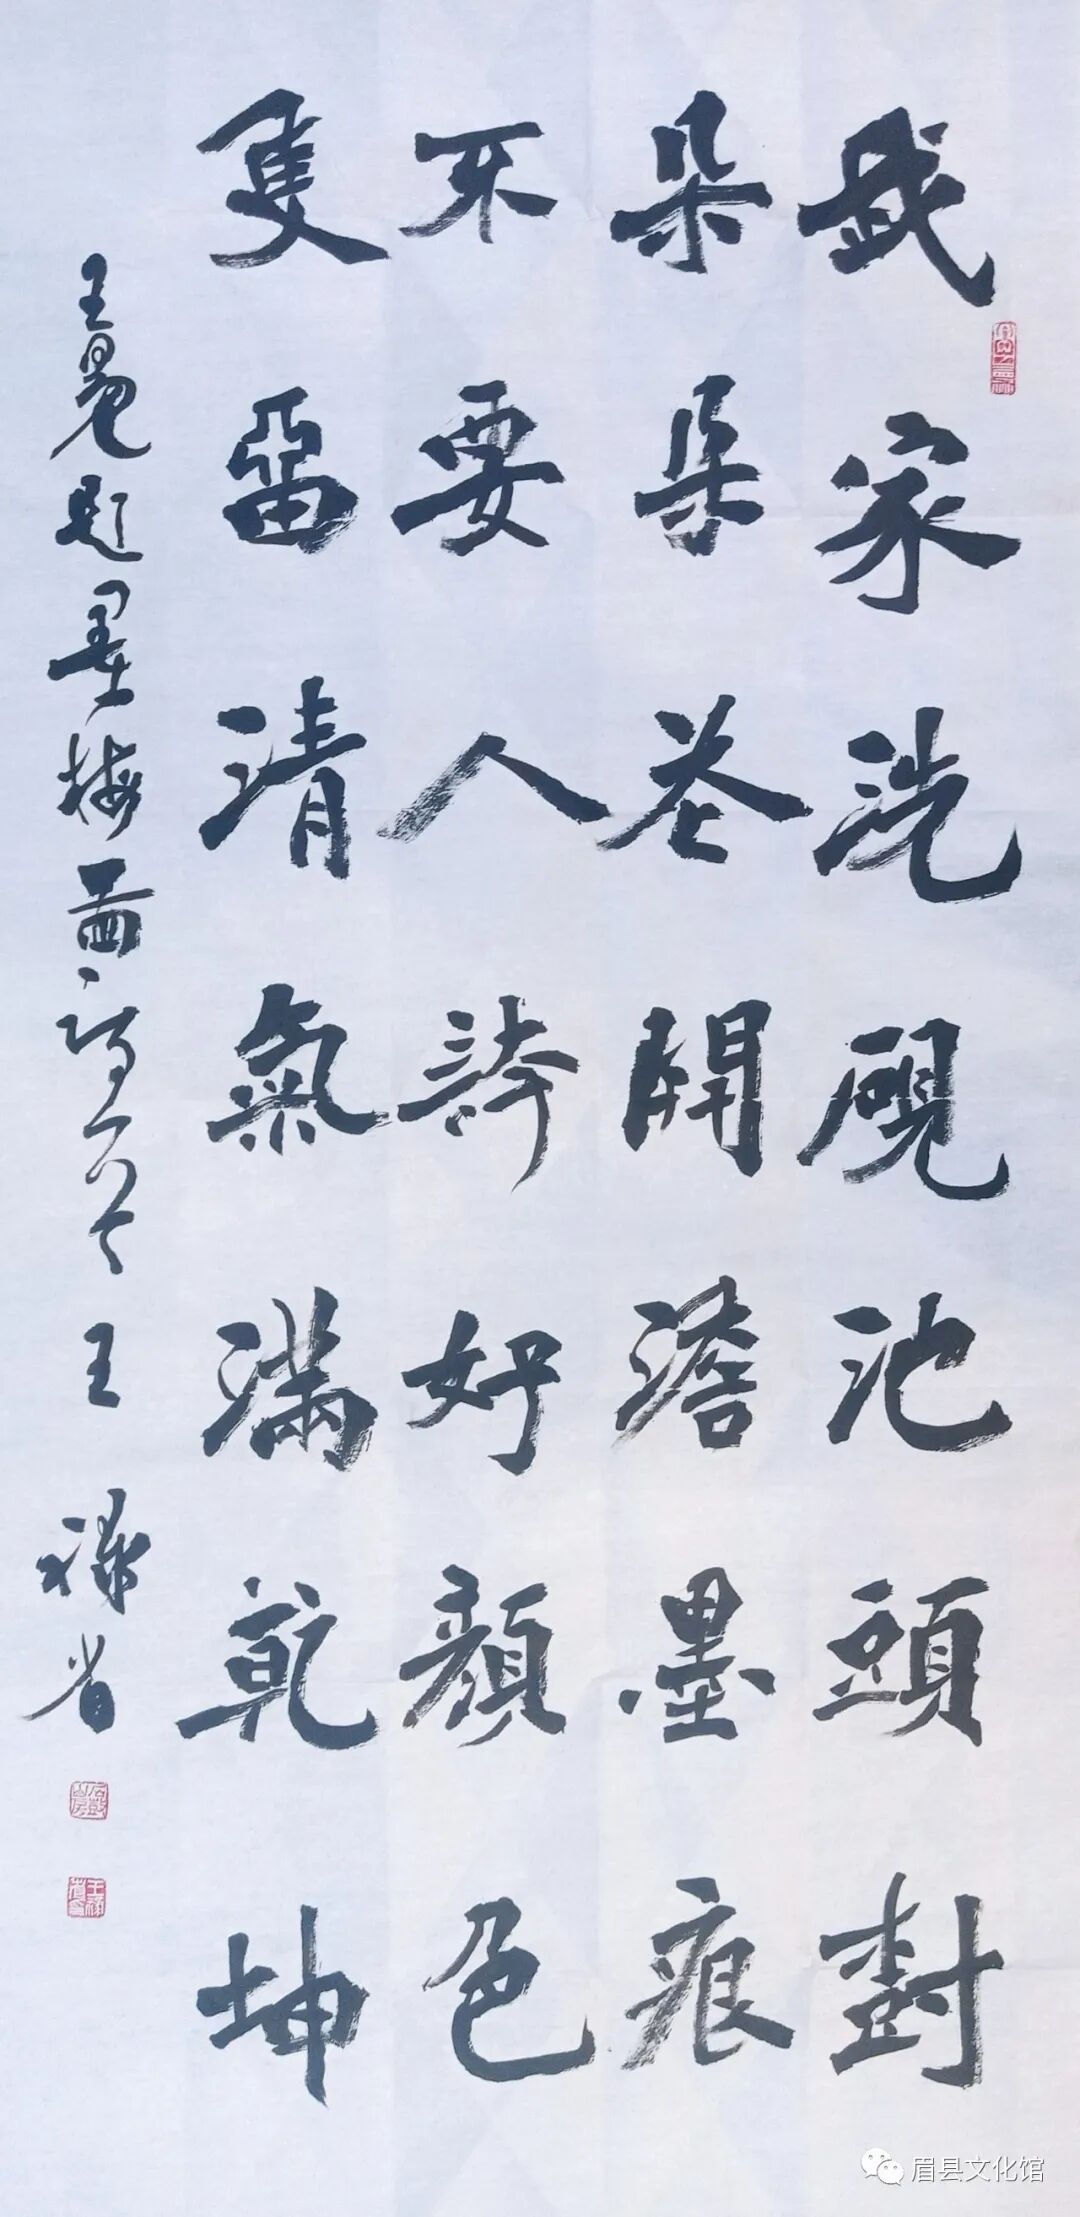 我家洗硯池頭樹
朵朵花開澹墨痕
不要人誇好顏色
隻留清氣滿乾坤
王冕題墨梅圖詩一首 王祿省
眉县文化馆